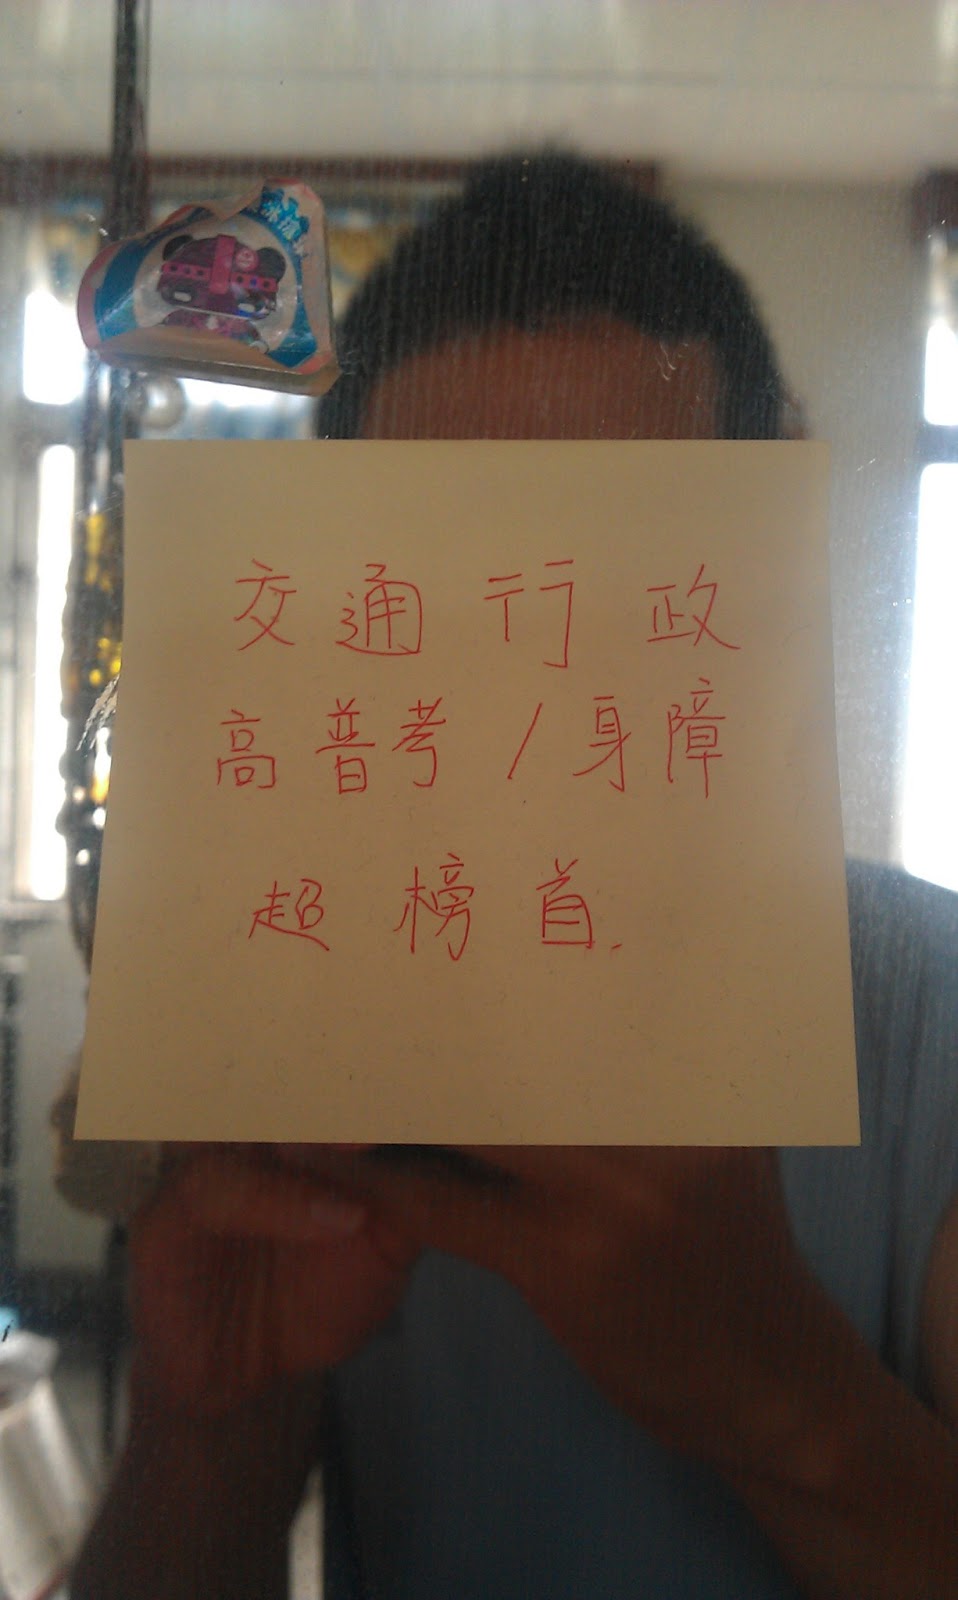 交通行政
高普考/身障
超榜首.